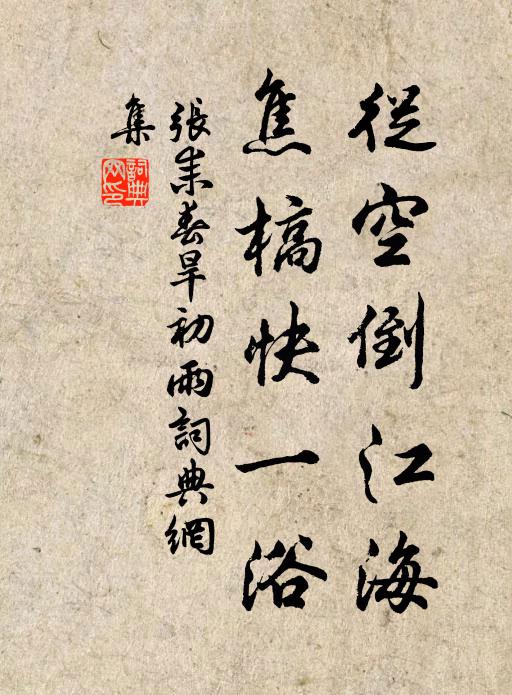 從空倒江海
焦槁快一浴
張耒春旱初雨詞典網
集
詞典
網印